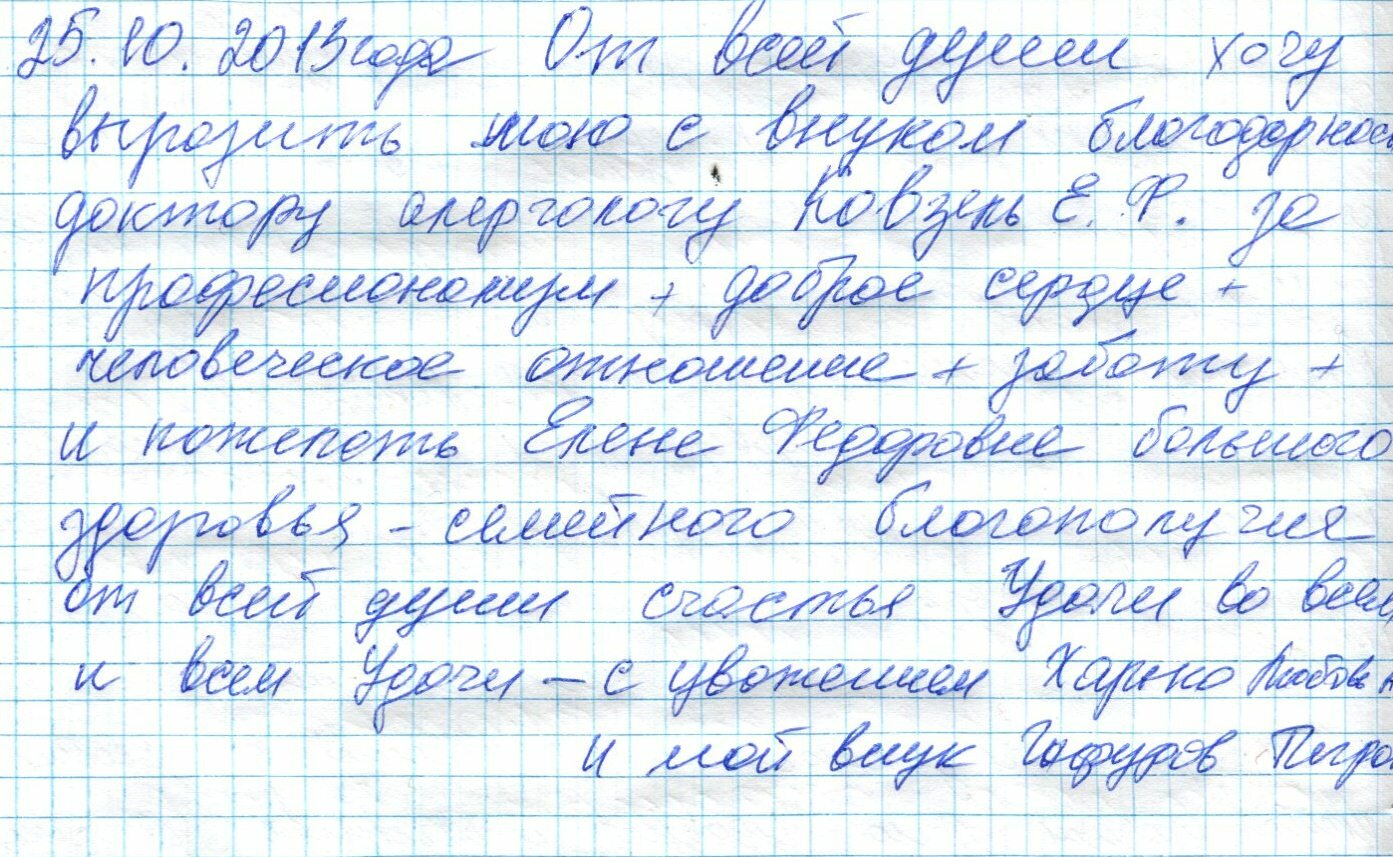 25.10.2013 года От всей души хочу
выразить мою с внуком благодарнос
доктору алергологу Ковзель Е. Ф. за
професионализм + доброе сердце +
человеческое отношение + заботу +
и пожелать Елене Федоровне большого
здоровья - семейного благополучия
от всей души счастья Удачи во всем
и всем Удачи - с уважением Харько Любовь
и мой внук Гафуров